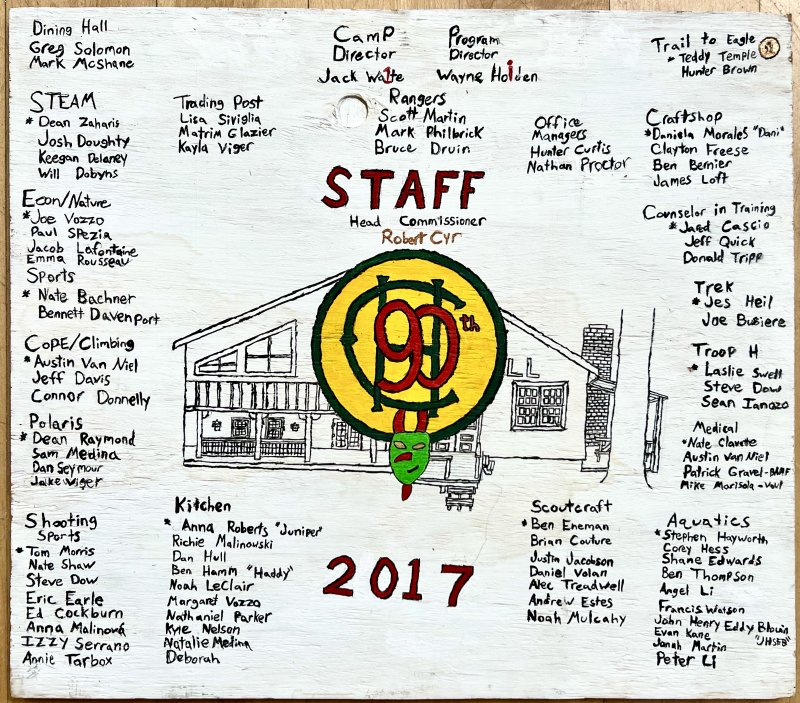 Dining Hall
Greg Solomon
Mark McShane
Camp
Director
Jack Waite
Program
Director
Wayne Holden
Trail to Eagle
* Teddy Temple
Hunter Brown
STEAM
* Dean Zaharis
Josh Doughty
Keegan Delaney
Will Dobyns
Trading Post
Lisa Siviglia
Matrim Glazier
Kayla Viger
Rangers
Scott Martin
Mark Philbrick
Bruce Druin
Office
Managers
Hunter Curtis
Nathan Proctor
Craftshop
* Daniela Morales "Dani"
Clayton Freese
Ben Bernier
James Loft
STAFF
Head Commissioner
Robert Cyr
Econ/Nature
* Joe Vozzo
Paul Spezia
Jacob Lafontaine
Emma Rousseau
Counselor in Training
* Jared Cascio
Jeff Quick
Donald Tripp
Sports
* Nate Bachner
Bennett Davenport
Trek
* Jes Heil
Joe Busiere
COPE/Climbing
* Austin Van Niel
Jeff Davis
Connor Donnelly
90th
LL
Troop H
* Laslie Swell
Steve Dow
Sean Ianozo
Polaris
* Dean Raymond
Sam Medina
Dan Seymour
Jake Viger
Medical
* Nate Clavete
Austin Van Niel
Patrick Gravel-
Mike Marisola-
Shooting
Sports
* Tom Morris
Nate Shaw
Steve Dow
Eric Earle
Ed Cockburn
Anna Malinova
Izzy Serrano
Annie Tarbox
Kitchen
* Anna Roberts "Juniper"
Richie Malinowski
Dan Hull
Ben Hamm "Haddy"
Noah LeClair
Margaret Vozzo
Nathaniel Parker
Kyle Nelson
Natalie Medina
Deborah
2017
Scoutcraft
* Ben Eneman
Brian Couture
Justin Jacobson
Daniel Volan
Alec Treadwell
Andrew Estes
Noah Mulcahy
Aquatics
* Stephen Hayworth
Corey Hess
Shane Edwards
Ben Thompson
Angel Li
Francis Watson
John Henry Eddy Blouin
Evan Kane "JHSEB"
Jonah Martin
Peter Li